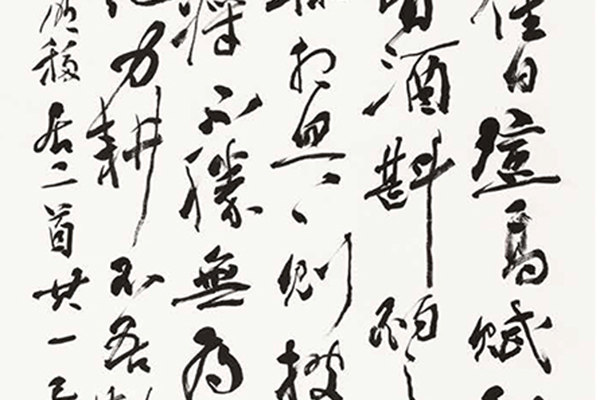 佳日登高賦
有酒斟酌之
相思〻則披
將不勝無為
力耕不吾
明移居二首其一